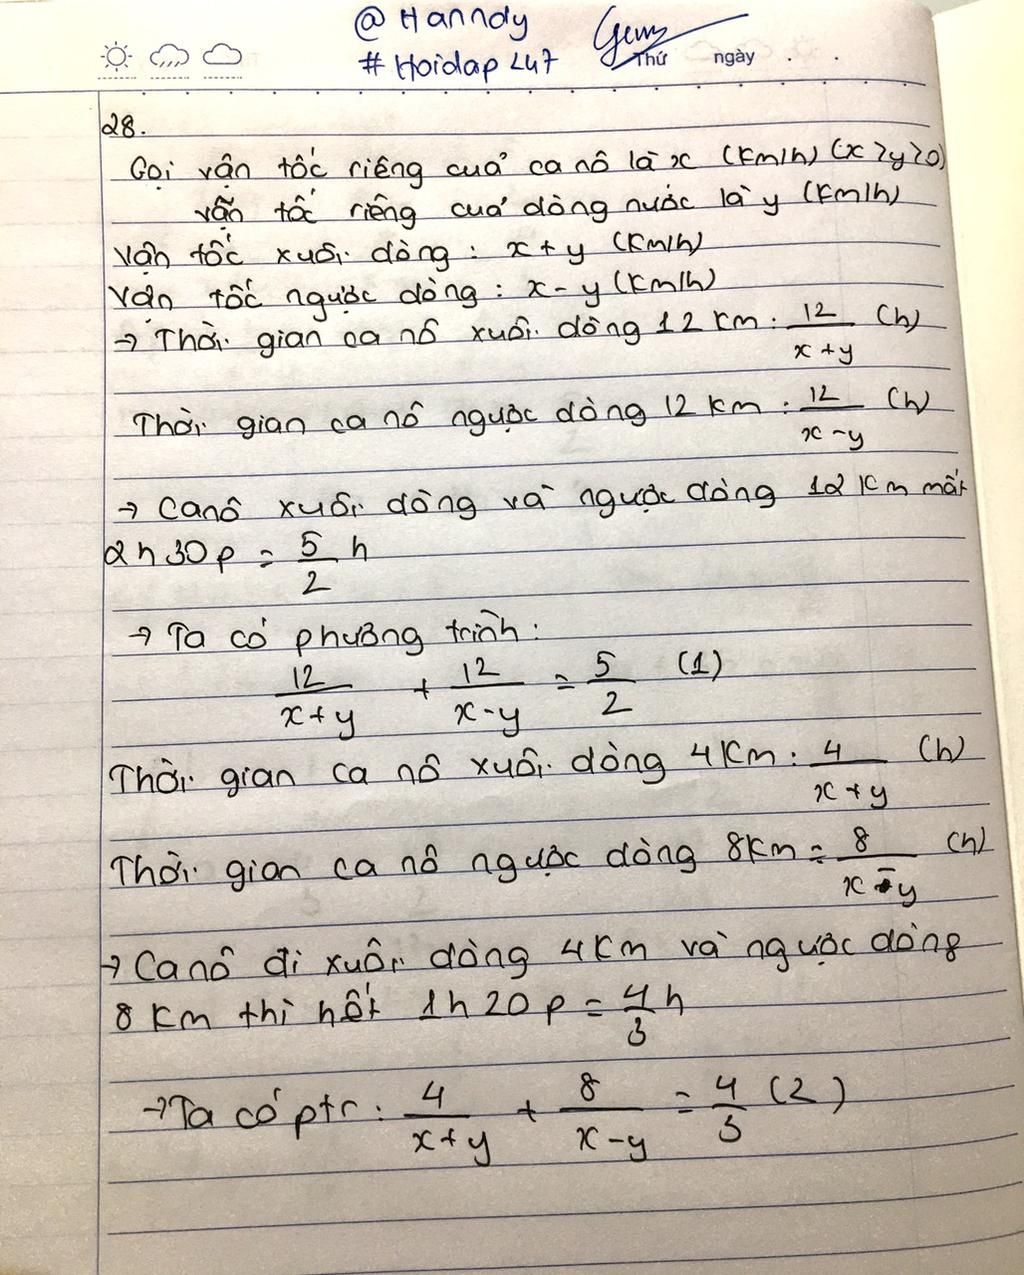 @Hanndy
#Hoidap247
Thứ ngày
28.
Gọi vận tốc riêng của ca nô là x (km/h) (x>y>0)
vận tốc riêng của dòng nước là y (km/h)
Vận tốc xuôi dòng : x+y (km/h)
Vận tốc ngược dòng : x-y (km/h)
→ Thời gian ca nô xuôi dòng 12 km : 12/(x+y) (h)
Thời gian ca nô ngược dòng 12 km : 12/(x-y) (h)
→ Canô xuôi dòng và ngược dòng 12 km mất
2h30p = 5/2 h
→ Ta có phương trình :
12/(x+y) + 12/(x-y) = 5/2 (1)
Thời gian ca nô xuôi dòng 4km : 4/(x+y) (h)
Thời gian ca nô ngược dòng 8km = 8/(x-y) (h)
→ Canô đi xuôi dòng 4km và ngược dòng
8 km thì hết 1h20p = 4/3 h
→ Ta có ptr : 4/(x+y) + 8/(x-y) = 4/3 (2)